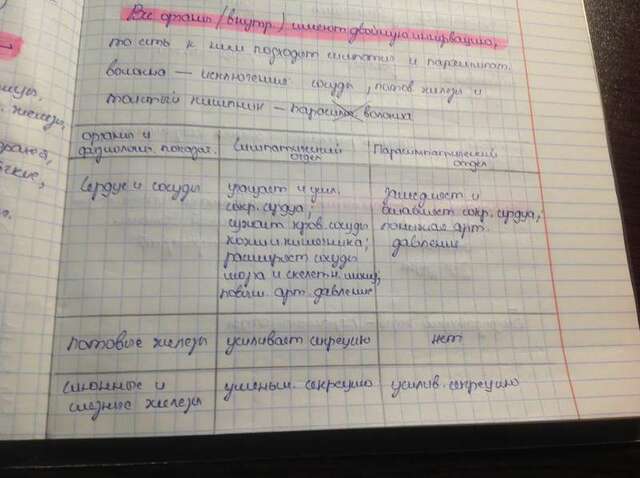 Все органы (внутр.) имеют двойную иннервацию,
то есть к ним подходят симпатич. и парасимпат.
волокна — исключения сосуды, потов. железы и
толстый кишечник — парасимп. волокна
органы и физиологич. показат.
Симпатический отдел
Парасимпатический отдел
Сердце и сосуды
учащает и усил. сокр. сердца;
сужает кров. сосуды
кожи и кишечника;
расширяет сосуды
мозга и скелетн. мышц;
повыш. арт. давление
замедляет и
ослабляет сокр. сердца,
понижая арт.
давление
потовые железы
усиливает секрецию
нет
слюнные и
слезные железы
уменьш. секрецию
усилив. секрецию